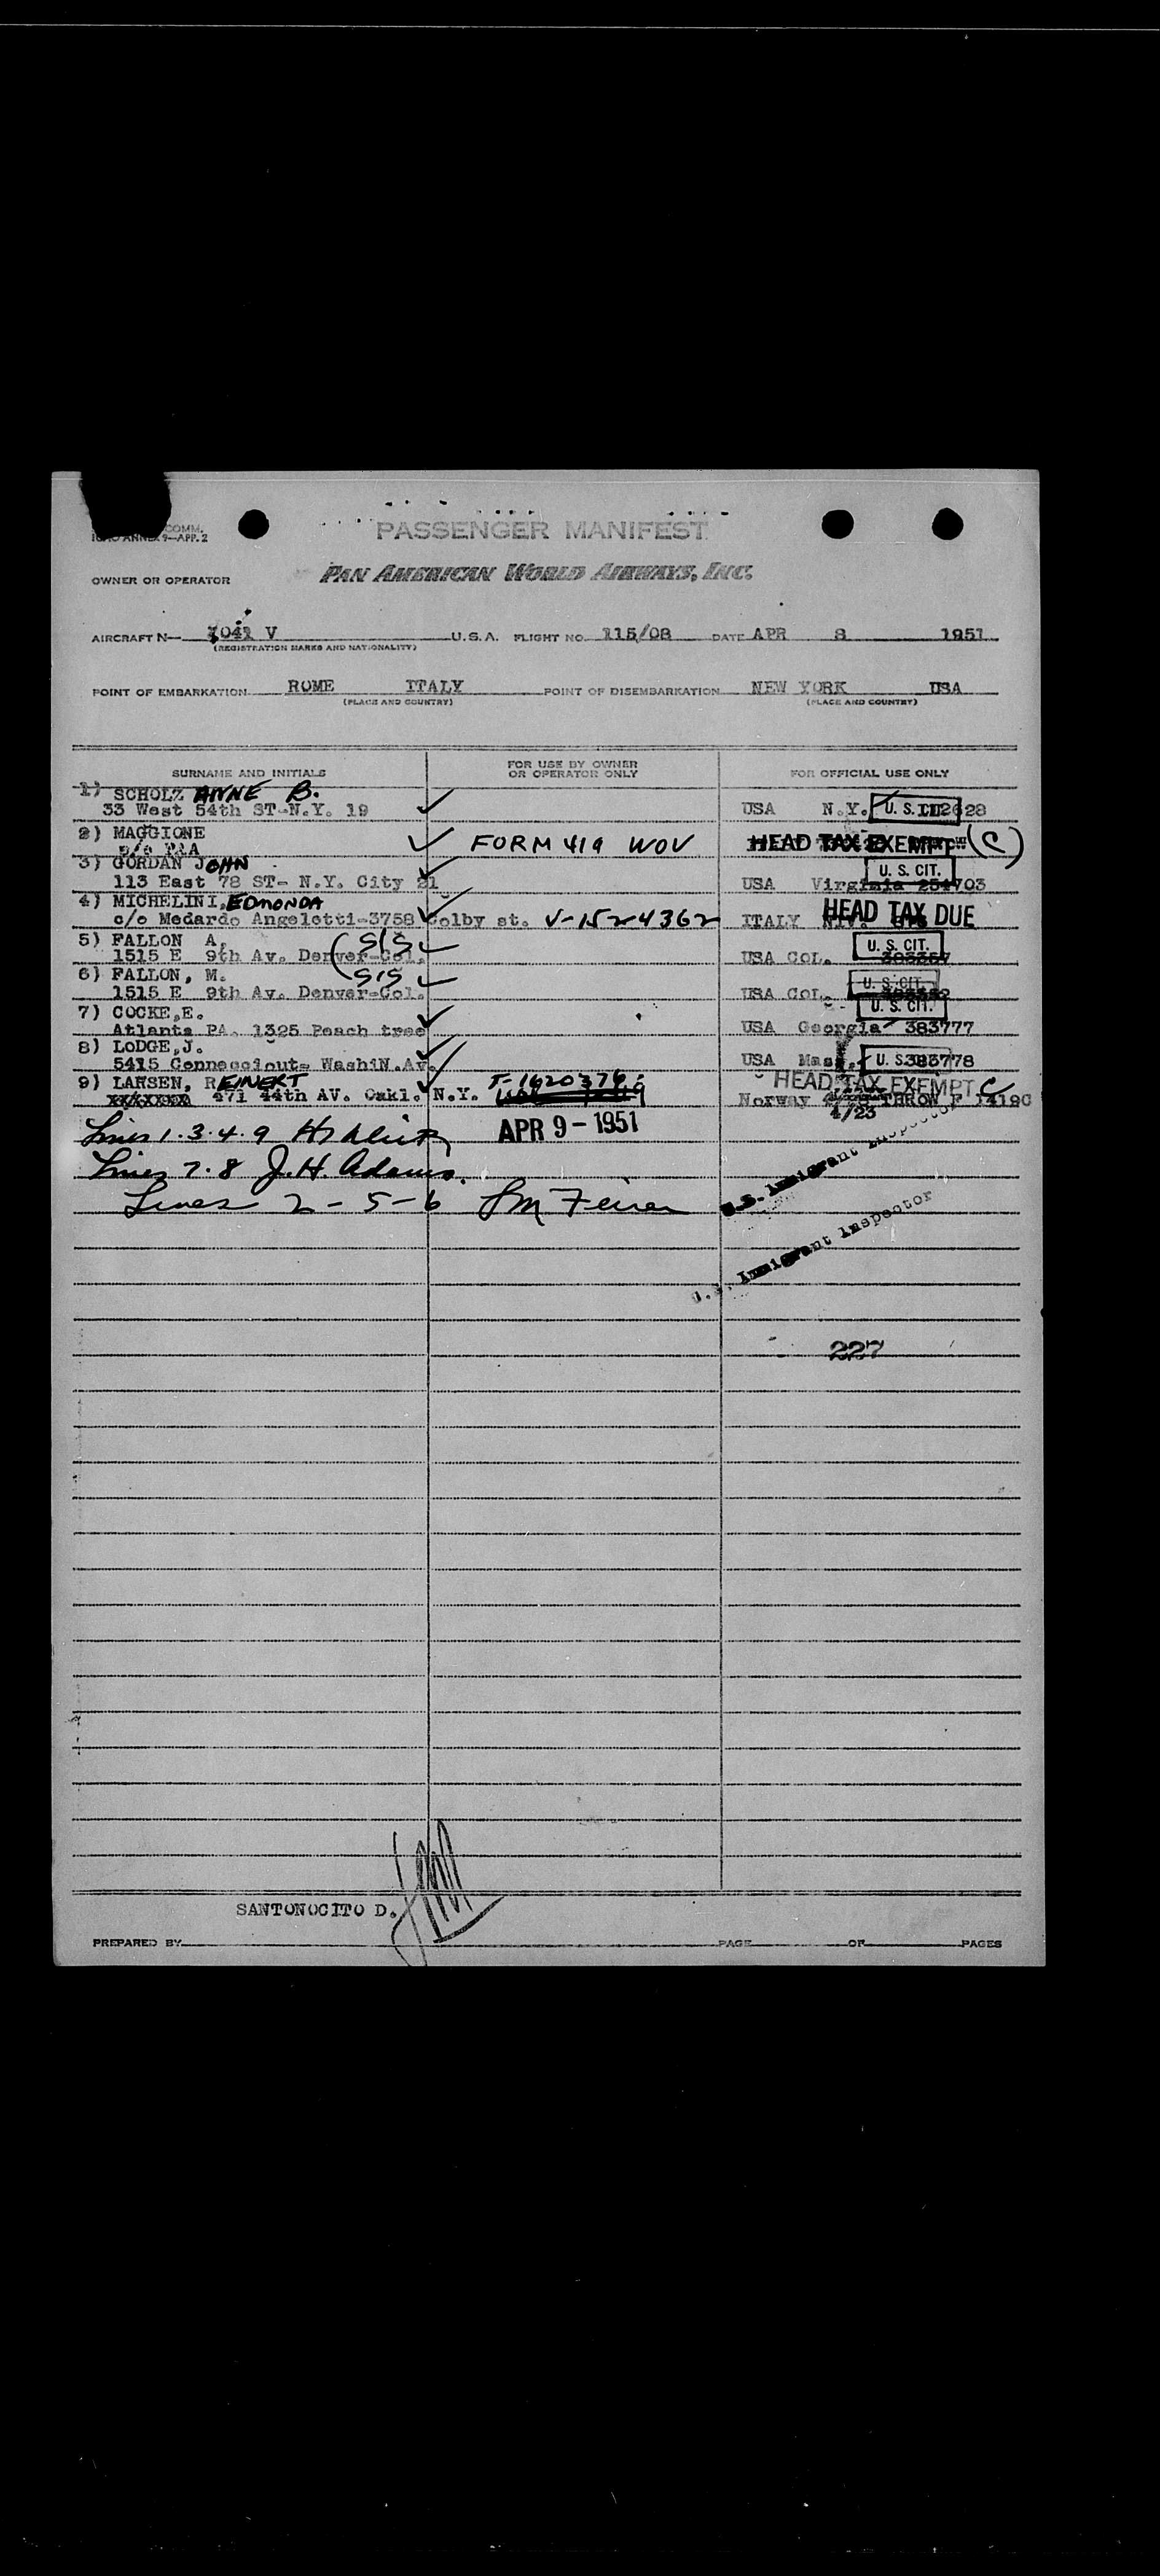 COMM.
ICAO ANNEX 9—APP. 2
PASSENGER MANIFEST
OWNER OR OPERATOR
PAN AMERICAN WORLD AIRWAYS, INC.
AIRCRAFT N— 1041 V U.S.A. FLIGHT NO. 115/08 DATE APR 8 1951
(REGISTRATION MARKS AND NATIONALITY)
POINT OF EMBARKATION ROME ITALY POINT OF DISEMBARKATION NEW YORK USA
(PLACE AND COUNTRY) (PLACE AND COUNTRY)
SURNAME AND INITIALS FOR USE BY OWNER OR OPERATOR ONLY FOR OFFICIAL USE ONLY
1) SCHOLZ ANNE B.
33 West 54th ST-N.Y. 19 USA N.Y. U. S. CIT.
2) MAGGIONE
c/o PAA FORM 419 WOV HEAD TAX EXEMPT (C)
3) GORDAN JOHN U. S. CIT.
113 East 78 ST- N.Y. City 21 USA Virginia 254703
4) MICHELINI, EDMONDA
c/o Medardo Angelotti-3758 Colby st. V-1524362 ITALY HEAD TAX DUE
5) FALLON A. (SIS U. S. CIT.
1515 E 9th Av. Denver-Col. USA COL.
6) FALLON, M. (SIS U. S. CIT.
1515 E 9th Av. Denver-Col. USA COL.
7) COCKE,E. U. S. CIT.
Atlanta PA. 1325 Peach tree USA Georgia 383777
8) LODGE,J.
5415 Connecciout- WashiN.Av. USA Mas. U. S. 383778
9) LARSEN, REINERT T-1620376 HEAD TAX EXEMPT C
471 44th AV. Oakl. N.Y. Norway THROW F
4/23
APR 9 - 1951
Lines 1.3.4.9
Lines 7.8 J.H. Adams.
Lines 2-5-6
U.S. Immigrant Inspector
U.S. Immigrant Inspector
227
SANTONOCITO D.
PREPARED BY PAGE OF PAGES